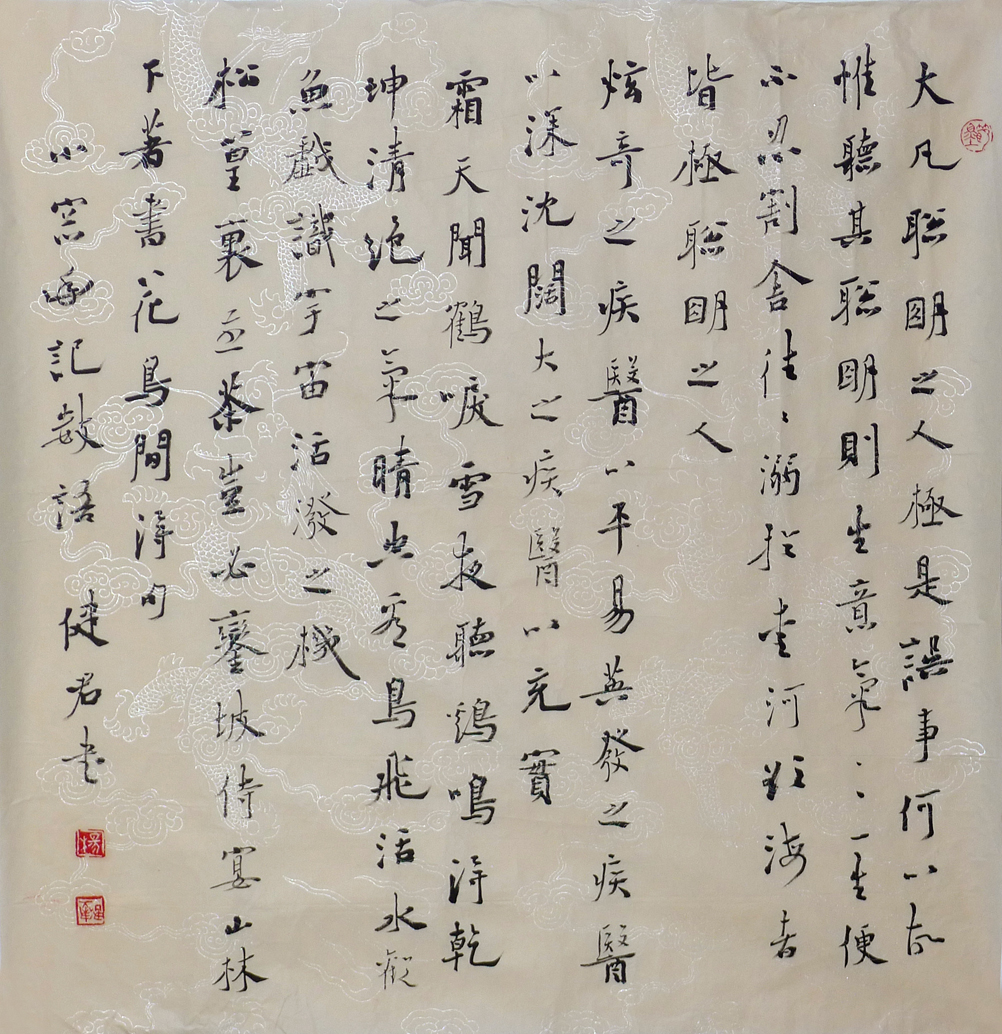 大凡聡明之人極是誤事何以故
惟聽其聡明則生意氣〻〻一生便
不忍割舍往〻溺於愛河慾海者
皆極聡明之人
炫奇之疾醫以平易英發之疾醫
以深沈闊大之疾醫以充實
霜天聞鶴唳雪夜聽鷄鳴淂乾
坤清绝之氣晴空看鳥飛活水觀
魚戲識宇宙活潑之機
松篁裏煎茶豈必鑾坡侍宴山林
下著書花鳥間淂句
小窓幽記數語 健君书